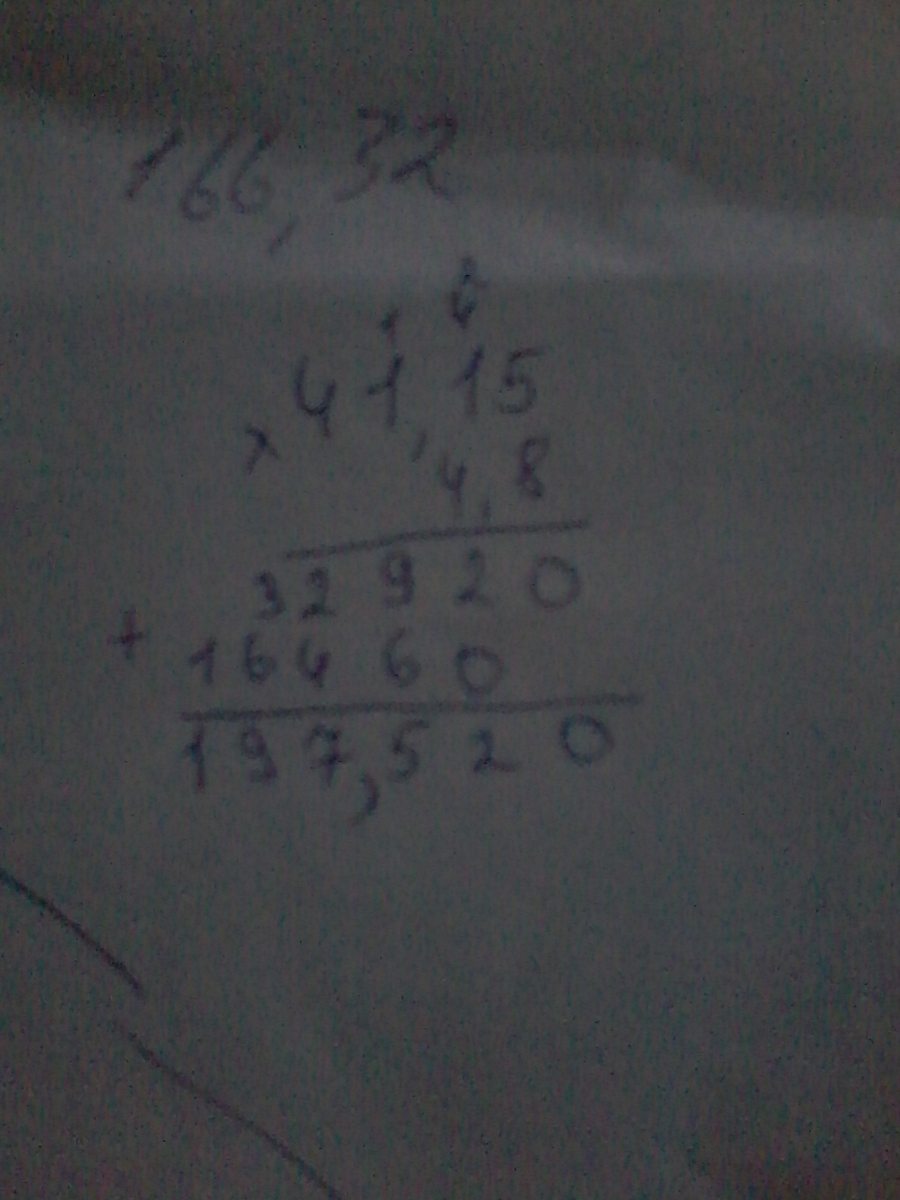 166,32
1 4
41,15
× 4,8
32920
+ 16460
197,520